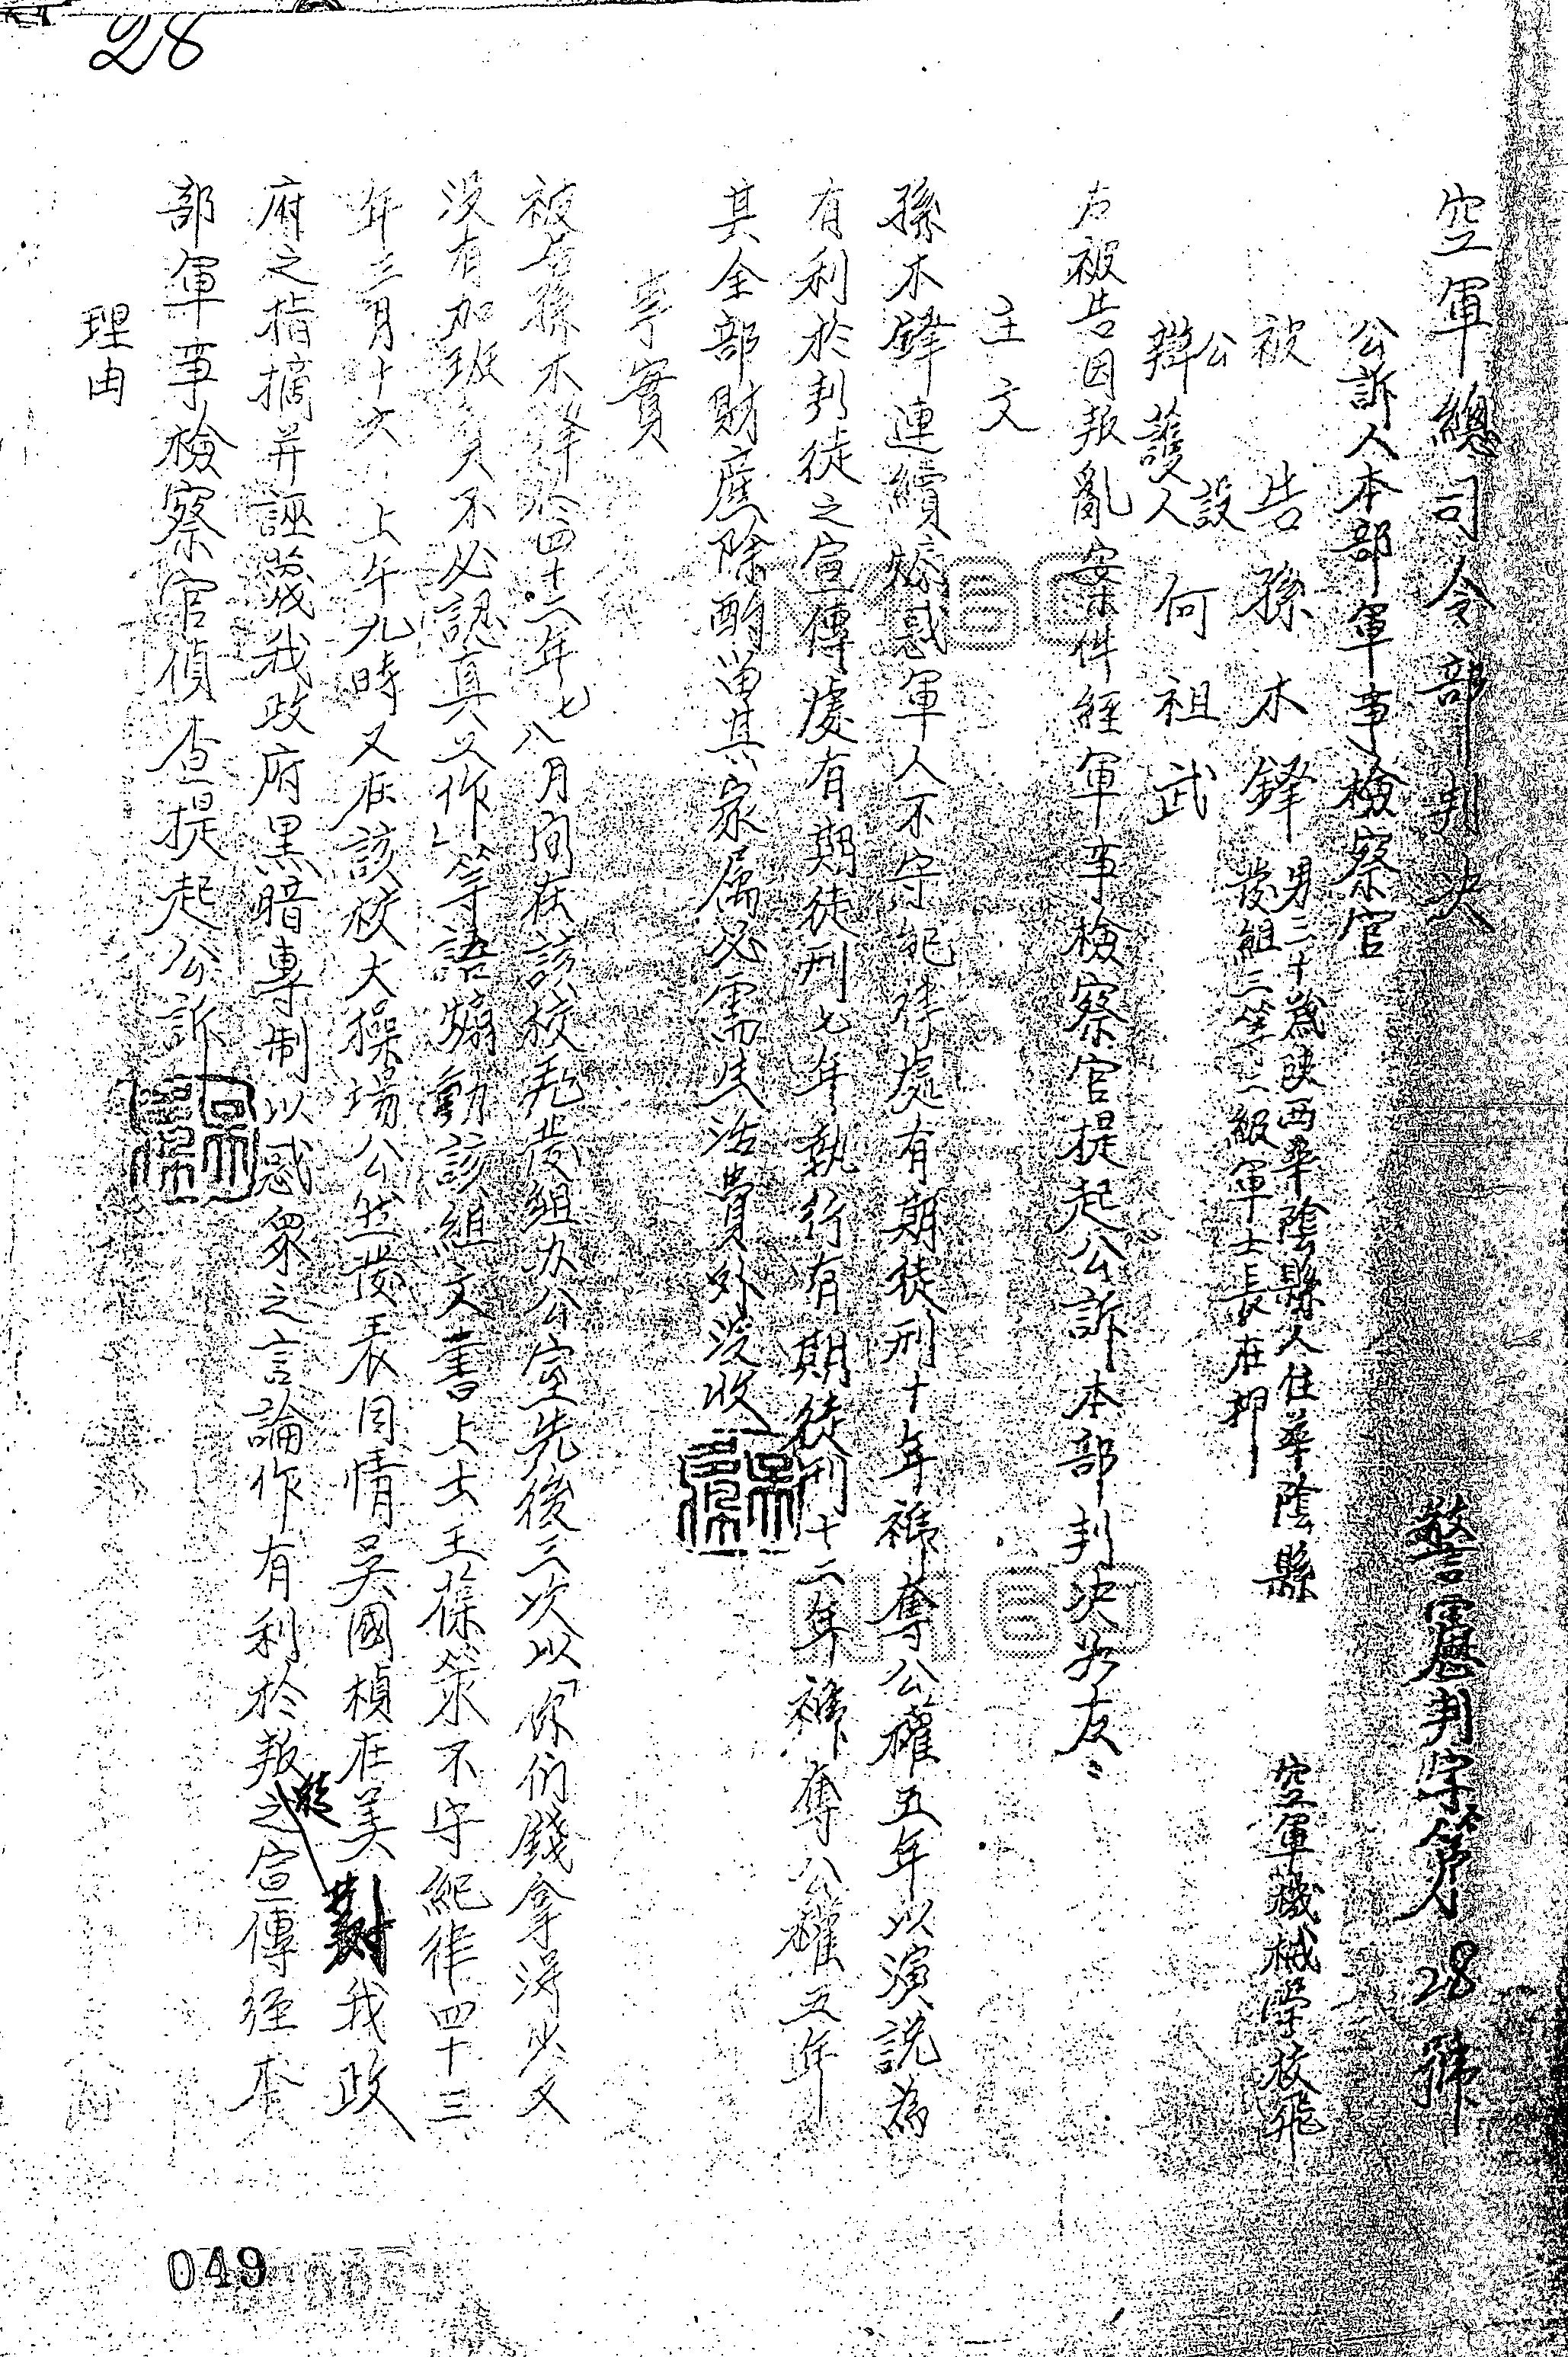 28
空軍總司令部判決 警審判字第28號
公訴人本部軍事檢察官
被告孫木鐸 男三十歲陝西華陰縣人住華陰縣 空軍機械學校飛
發組三等二級軍士長在押
公設
辯護人 何祖武
右被告因叛亂案件經軍事檢察官提起公訴本部判決如左:
主文
孫木鐸連續煽惑軍人不守紀律處有期徒刑十年褫奪公權五年以演說為
有利於判徒之宣傳處有期徒刑七年執行有期徒刑十二年褫奪公權五年
其全部財產除酌留其家屬必需生活費外沒收
事實
被告孫木鐸於四十二年七八月間在該校飛發組办公室先後三次以「你们錢拿得少又
沒有加班費不必認真工作」等語煽動該組文書上士王葆箂不守紀律四十三
年三月十六上午九時又在該校大操場公然發表同情吳國楨在美對我政
府之指摘并誣蔑我政府黑暗專制以惑眾之言論作有利於叛徒之宣傳經本
部軍事檢察官偵查提起公訴
理由
049